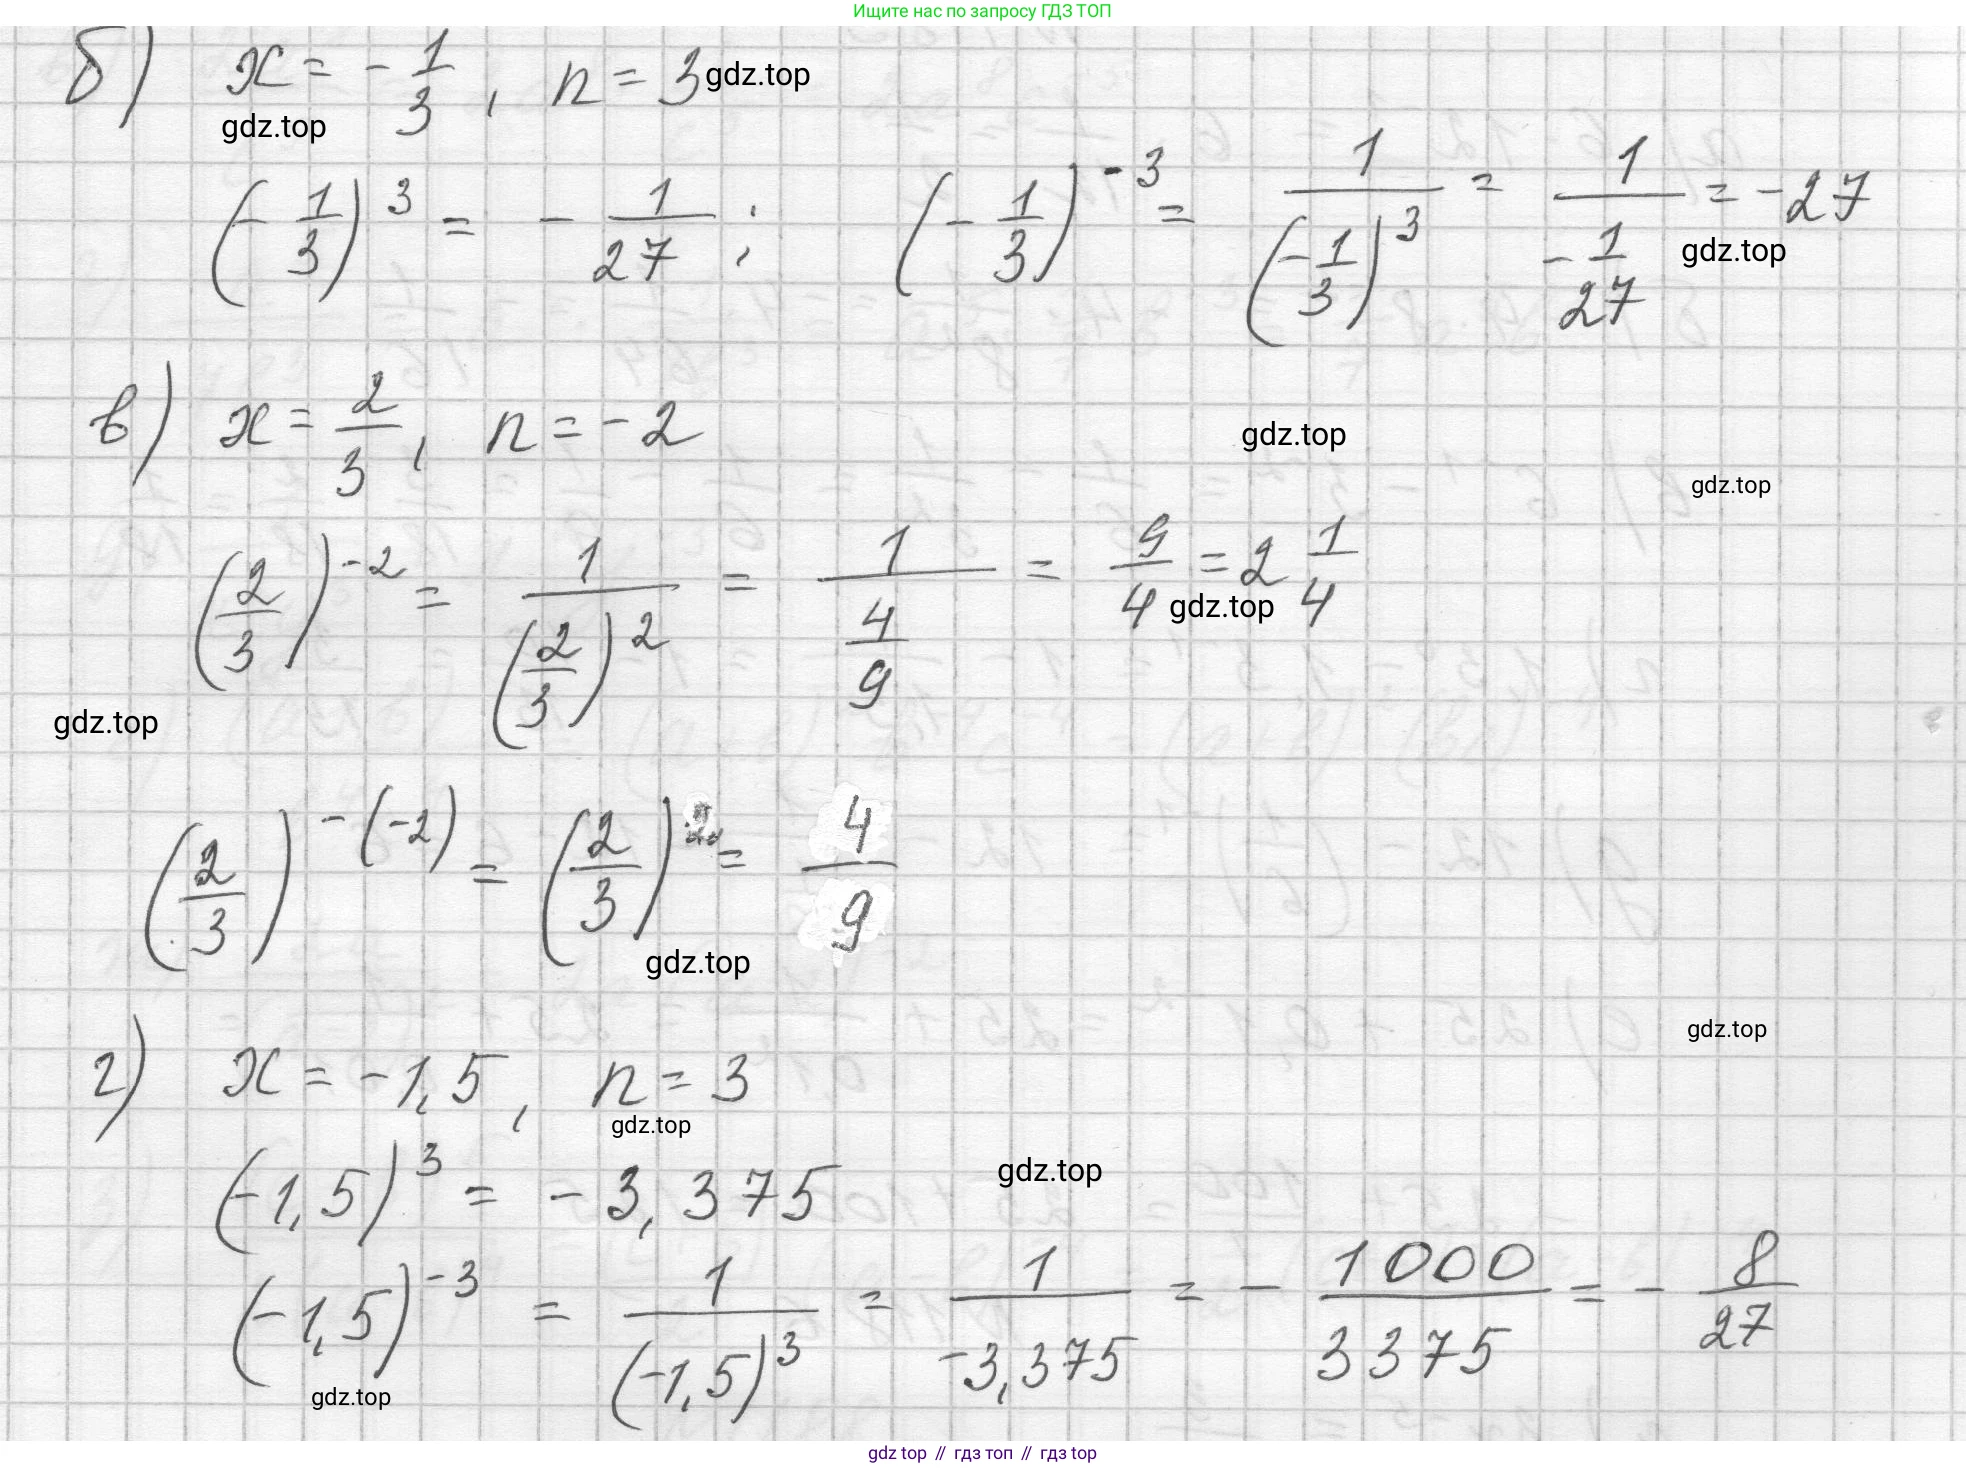 Ищите нас по запросу ГДЗ ТОП
б) x = -1/3, n = 3 gdz.top
gdz.top
(-1/3)^3 = -1/27; (-1/3)^-3 = 1/(-1/3)^3 = 1/(-1/27) = -27
gdz.top
в) x = 2/3, n = -2
gdz.top
gdz.top
(2/3)^-2 = 1/(2/3)^2 = 1/(4/9) = 9/4 = 2 1/4
gdz.top
gdz.top
(2/3)^-(-2) = (2/3)^2 = 4/9
gdz.top
gdz.top
г) x = -1,5, n = 3
gdz.top
(-1,5)^3 = -3,375
gdz.top
(-1,5)^-3 = 1/(-1,5)^3 = 1/-3,375 = -1000/3375 = -8/27
gdz.top
gdz top // гдз топ // гдз top